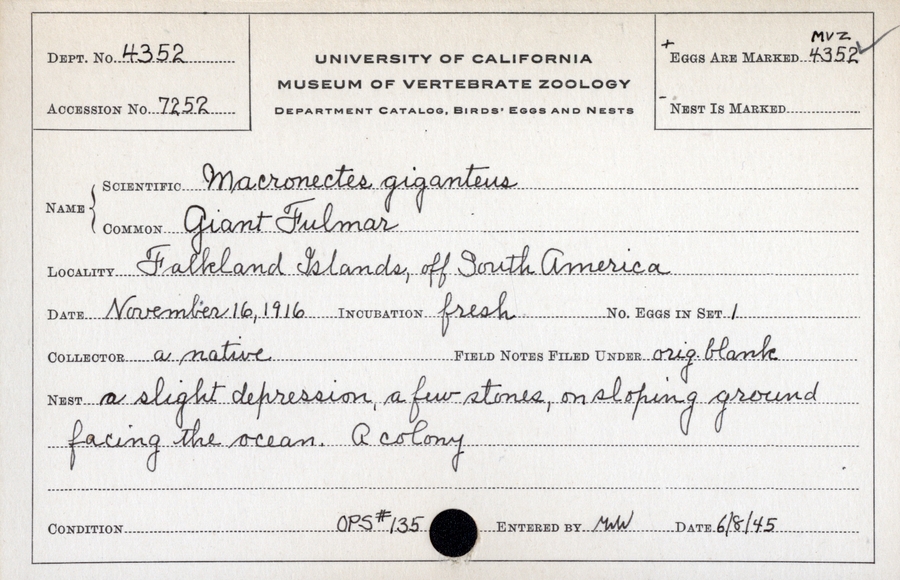 DEPT. No. 4352
ACCESSION No. 7252
UNIVERSITY OF CALIFORNIA
MUSEUM OF VERTEBRATE ZOOLOGY
DEPARTMENT CATALOG, BIRDS' EGGS AND NESTS
MVZ
+ EGGS ARE MARKED 4352 ✓
- NEST IS MARKED
NAME { SCIENTIFIC Macronectes giganteus
COMMON Giant Fulmar
LOCALITY Falkland Islands, off South America
DATE November 16, 1916 INCUBATION fresh No. EGGS IN SET 1
COLLECTOR a native FIELD NOTES FILED UNDER orig. blank
NEST a slight depression, a few stones, on sloping ground
facing the ocean. A colony
CONDITION OPS#135 ENTERED BY MW DATE 6/8/45